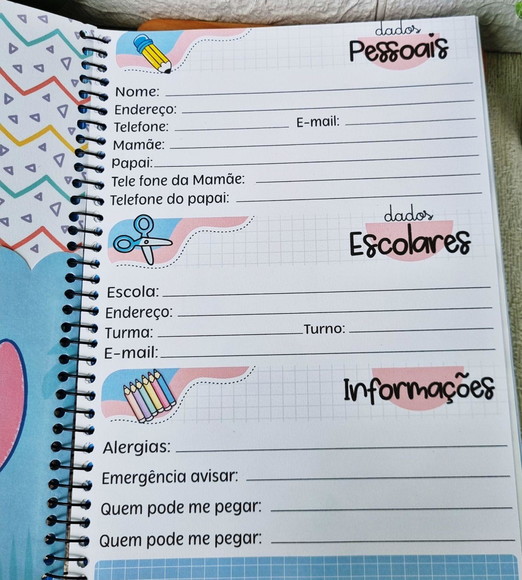 dados
Pessoais
Nome:
Endereço:
Telefone: E-mail:
Mamãe:
Papai:
Tele fone da Mamãe:
Telefone do papai:
dados
Escolares
Escola:
Endereço:
Turma: Turno:
E-mail:
Informações
Alergias:
Emergência avisar:
Quem pode me pegar:
Quem pode me pegar: